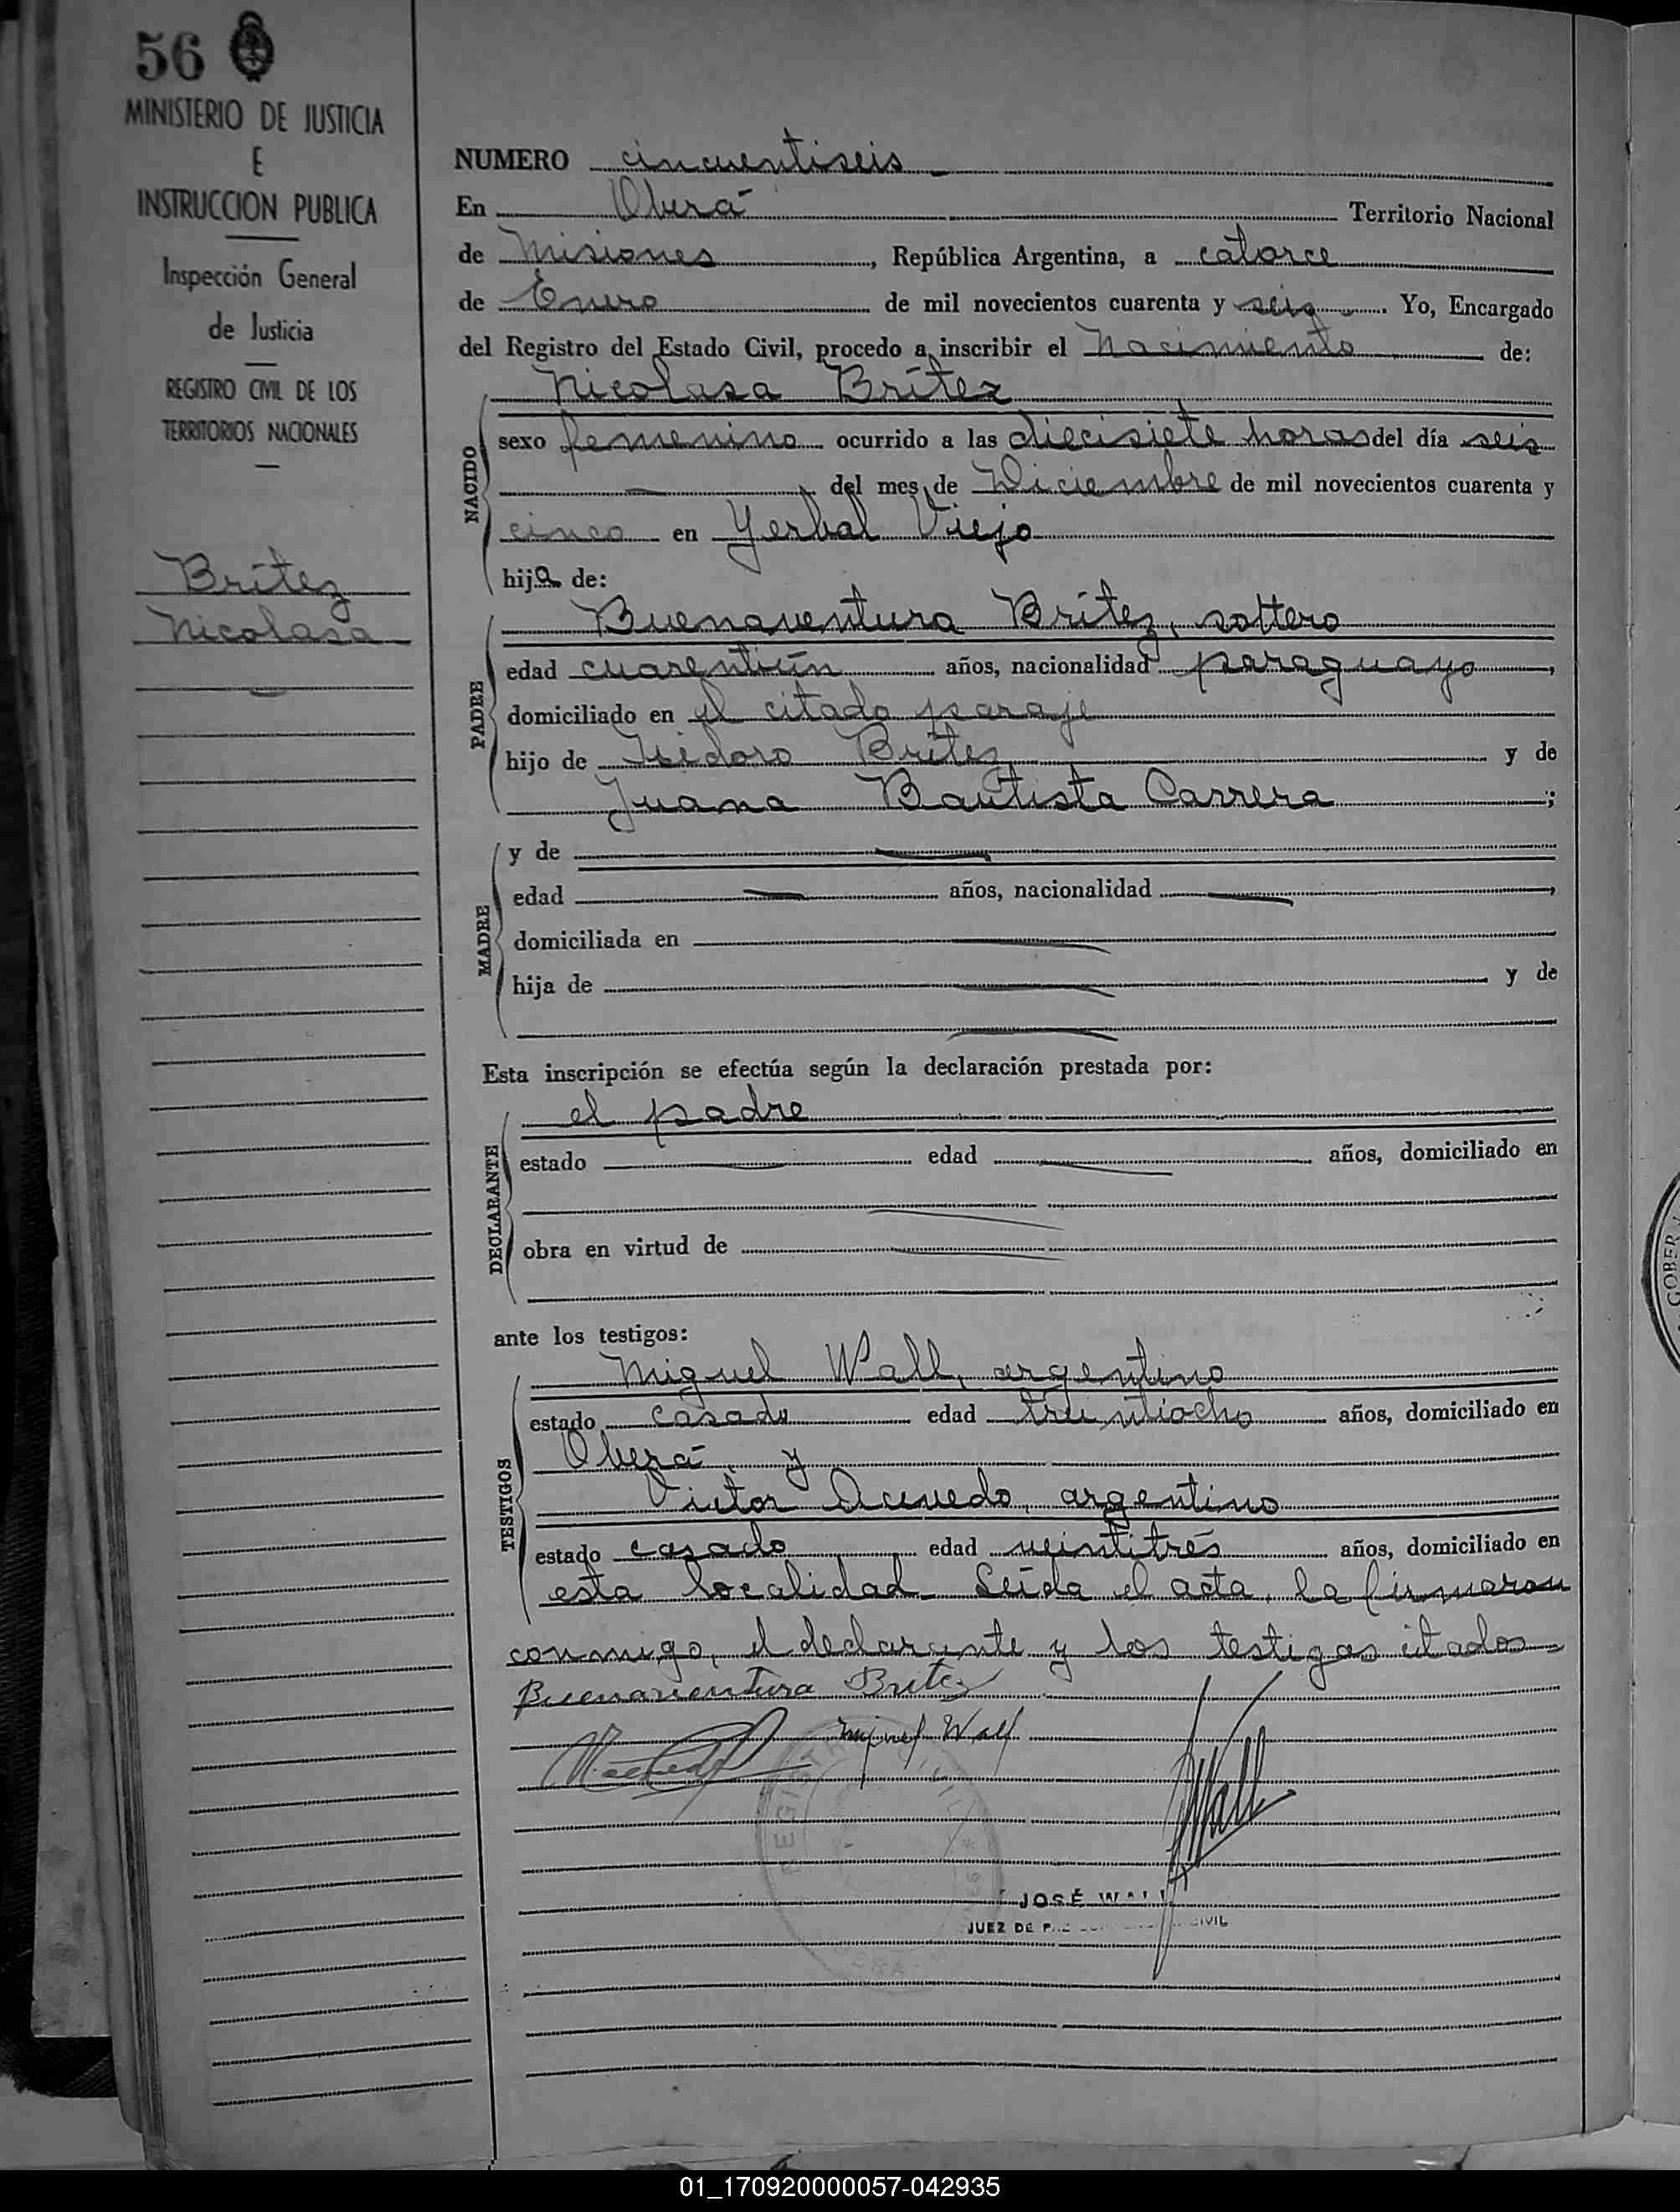 56
MINISTERIO DE JUSTICIA
E
INSTRUCCION PUBLICA
Inspección General
de Justicia
REGISTRO CIVIL DE LOS
TERRITORIOS NACIONALES
Brítez
Nicolasa
NUMERO cincuentiseis
En Oberá Territorio Nacional
de Misiones, República Argentina, a catorce
de Enero de mil novecientos cuarenta y seis. Yo, Encargado
del Registro del Estado Civil, procedo a inscribir el Nacimiento de:
NACIDO
Nicolasa Brítez
sexo femenino ocurrido a las diecisiete horas del día seis
del mes de Diciembre de mil novecientos cuarenta y
cinco en Yerbal Viejo
hija de:
PADRE
Buenaventura Brítez, soltero
edad cuarentiún años, nacionalidad paraguayo,
domiciliado en el citado paraje
hijo de Isidoro Brítez y de
Juana Bautista Carrera;
MADRE
y de
edad años, nacionalidad,
domiciliada en
hija de y de
Esta inscripción se efectúa según la declaración prestada por:
DECLARANTE
el padre
estado edad años, domiciliado en
obra en virtud de
ante los testigos:
TESTIGOS
Miguel Wall, argentino
estado casado edad treintiocho años, domiciliado en
Oberá, y
Victor Acevedo, argentino
estado casado edad veintitrés años, domiciliado en
esta localidad. Leída el acta, la firmaron
conmigo, el declarante y los testigos citados.
Buenaventura Britez
Miguel Wall
Wall
REGISTRO CIVIL
JOSÉ WALL
JUEZ DE PAZ CIVIL
GOBER
01_170920000057-042935